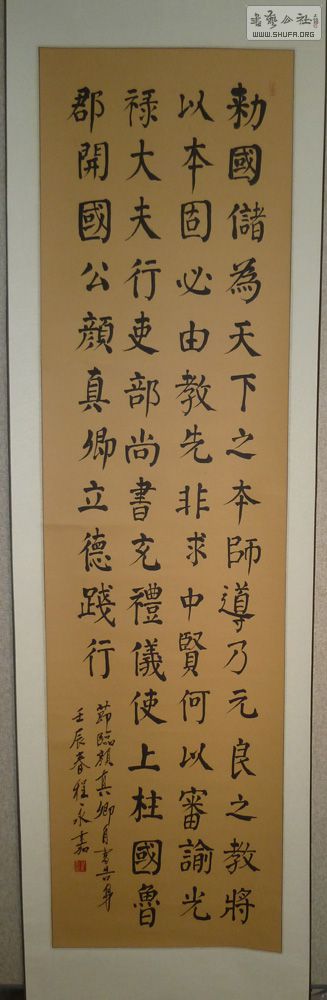 書藝公社
WWW.SHUFA.ORG
勅國儲為天下之本師導乃元良之教將
以本固必由教先非求中賢何以審諭光
祿大夫行吏部尚書充禮儀使上柱國魯
郡開國公顔真卿立德踐行
節臨顏真卿自書告身
壬辰春程永嘉